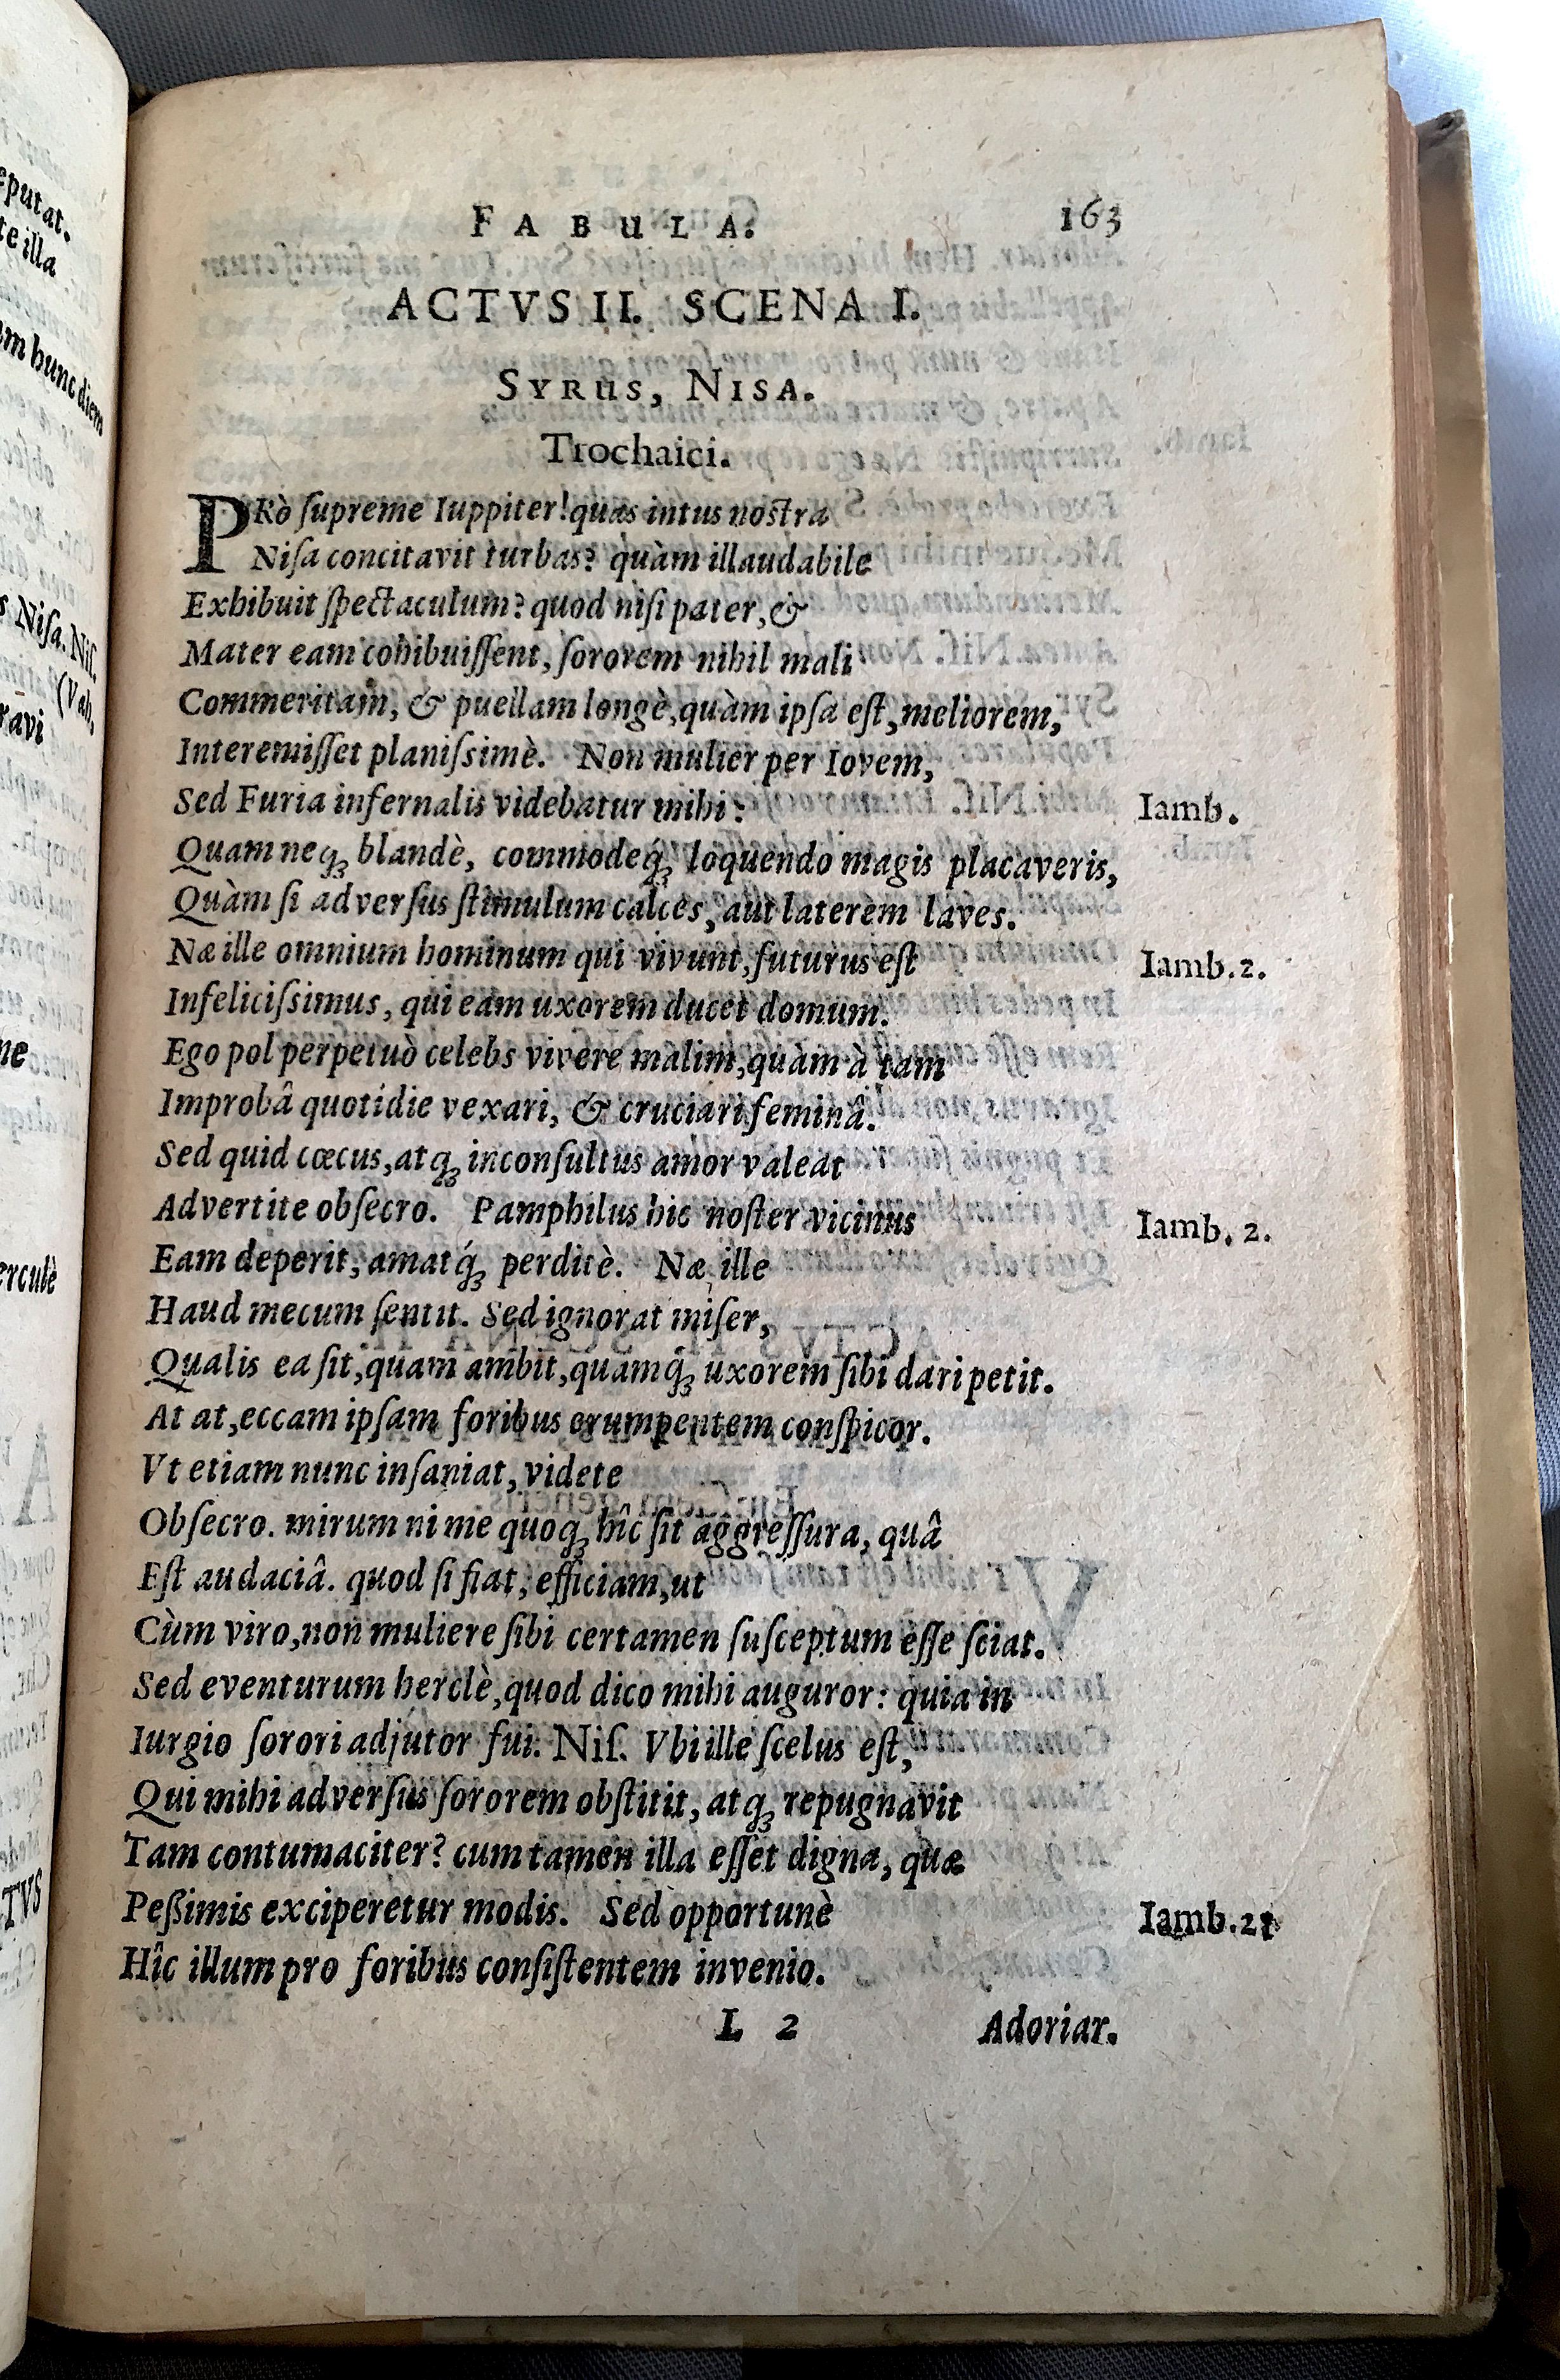 FABULA. 163
ACTVS II. SCENA I.
SYRUS, NISA.
Trochaici.
PRò ſupreme Iuppiter! quas intus noſtra
Niſa concitavit turbas? quàm illaudabile
Exhibuit ſpectaculum? quod niſi pater, &
Mater eam cohibuiſſent, ſororem nihil mali
Commeritam, & puellam longè, quàm ipſa eſt, meliorem,
Interemiſſet planiſsimè. Non mulier per Iovem,
Sed Furia infernalis videbatur mihi: Iamb.
Quam neq; blandè, commodeq́; loquendo magis placaveris,
Quàm ſi adverſus ſtimulum calces, aut laterem laves.
Næ ille omnium hominum qui vivunt, futurus eſt Iamb. 2.
Infeliciſsimus, qui eam uxorem ducet domum.
Ego pol perpetuò celebs vivere malim, quàm à tam
Improbâ quotidie vexari, & cruciari feminâ.
Sed quid cœcus, atq; inconſultus amor valeat
Advertite obſecro. Pamphilus hic noſter vicinus Iamb. 2.
Eam deperit, amatq́; perditè. Næ ille
Haud mecum ſentit. Sed ignorat miſer,
Qualis ea ſit, quam ambit, quamq́; uxorem ſibi dari petit.
At at, eccam ipſam foribus erumpentem conſpicor.
Vt etiam nunc inſaniat, videte
Obſecro. mirum ni me quoq; hîc ſit aggreſſura, quâ
Eſt audaciâ. quod ſi fiat, efficiam, ut
Cùm viro, non muliere ſibi certamen ſuſceptum eſſe ſciat.
Sed eventurum herclè, quod dico mihi auguror: quia in
Iurgio ſorori adjutor fui. Niſ. Vbi ille ſcelus eſt,
Qui mihi adverſus ſororem obſtitit, atq; repugnavit
Tam contumaciter? cum tamen illa eſſet digna, quæ
Peßimis exciperetur modis. Sed opportunè Iamb. 2
Hîc illum pro foribus conſiſtentem invenio.
L 2 Adoriar.